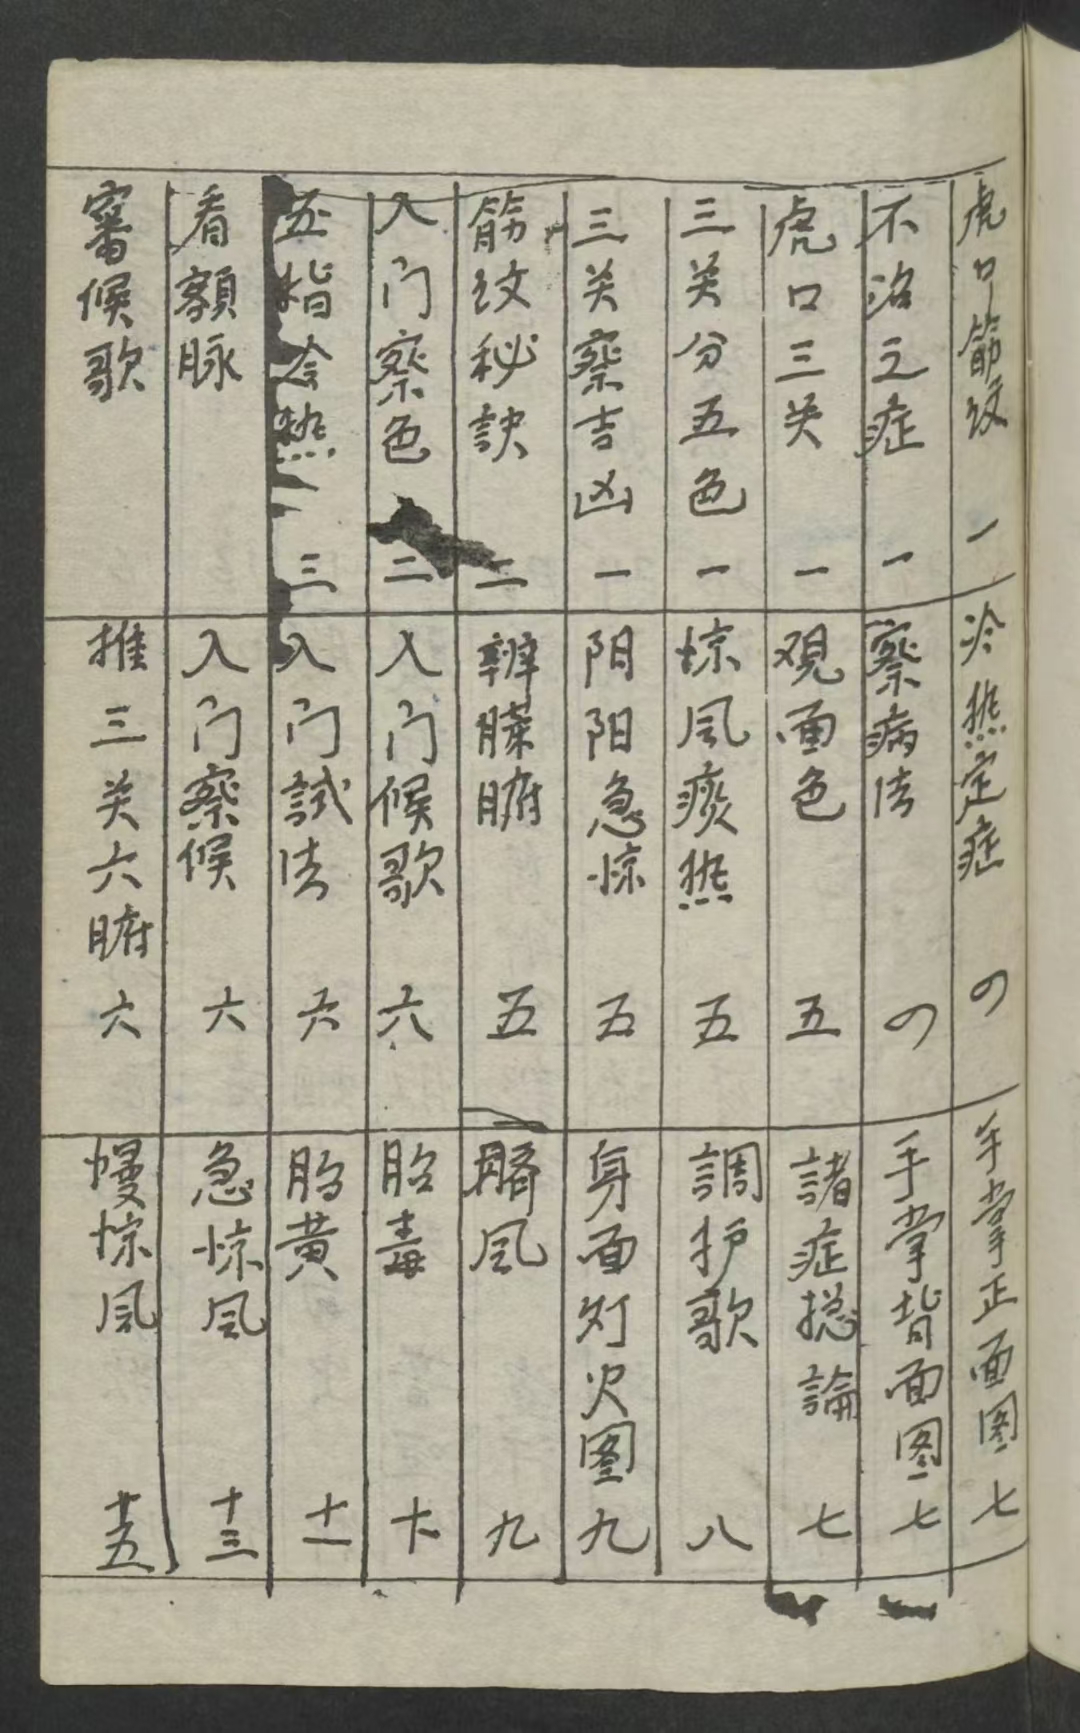 虎口筋纹 一
不治之症 一
虎口三关 一
三关分五色 一
三关察吉凶 一
筋纹秘訣 二
入门察色 二
五指冷热 三
看額脉
審候歌
冷热定症 の
察病法 の
观面色 五
惊风痰热 五
阳阳急惊 五
辨臓腑 五
入门候歌 六
入门試法 六
入门察候 六
推三关六腑 六
手掌正面图 七
手掌背面图 七
諸症搃論 七
調护歌 八
身面灯火图 九
臍风 九
胎毒 十
胎黄 十一
急惊风 十三
慢惊风 十五